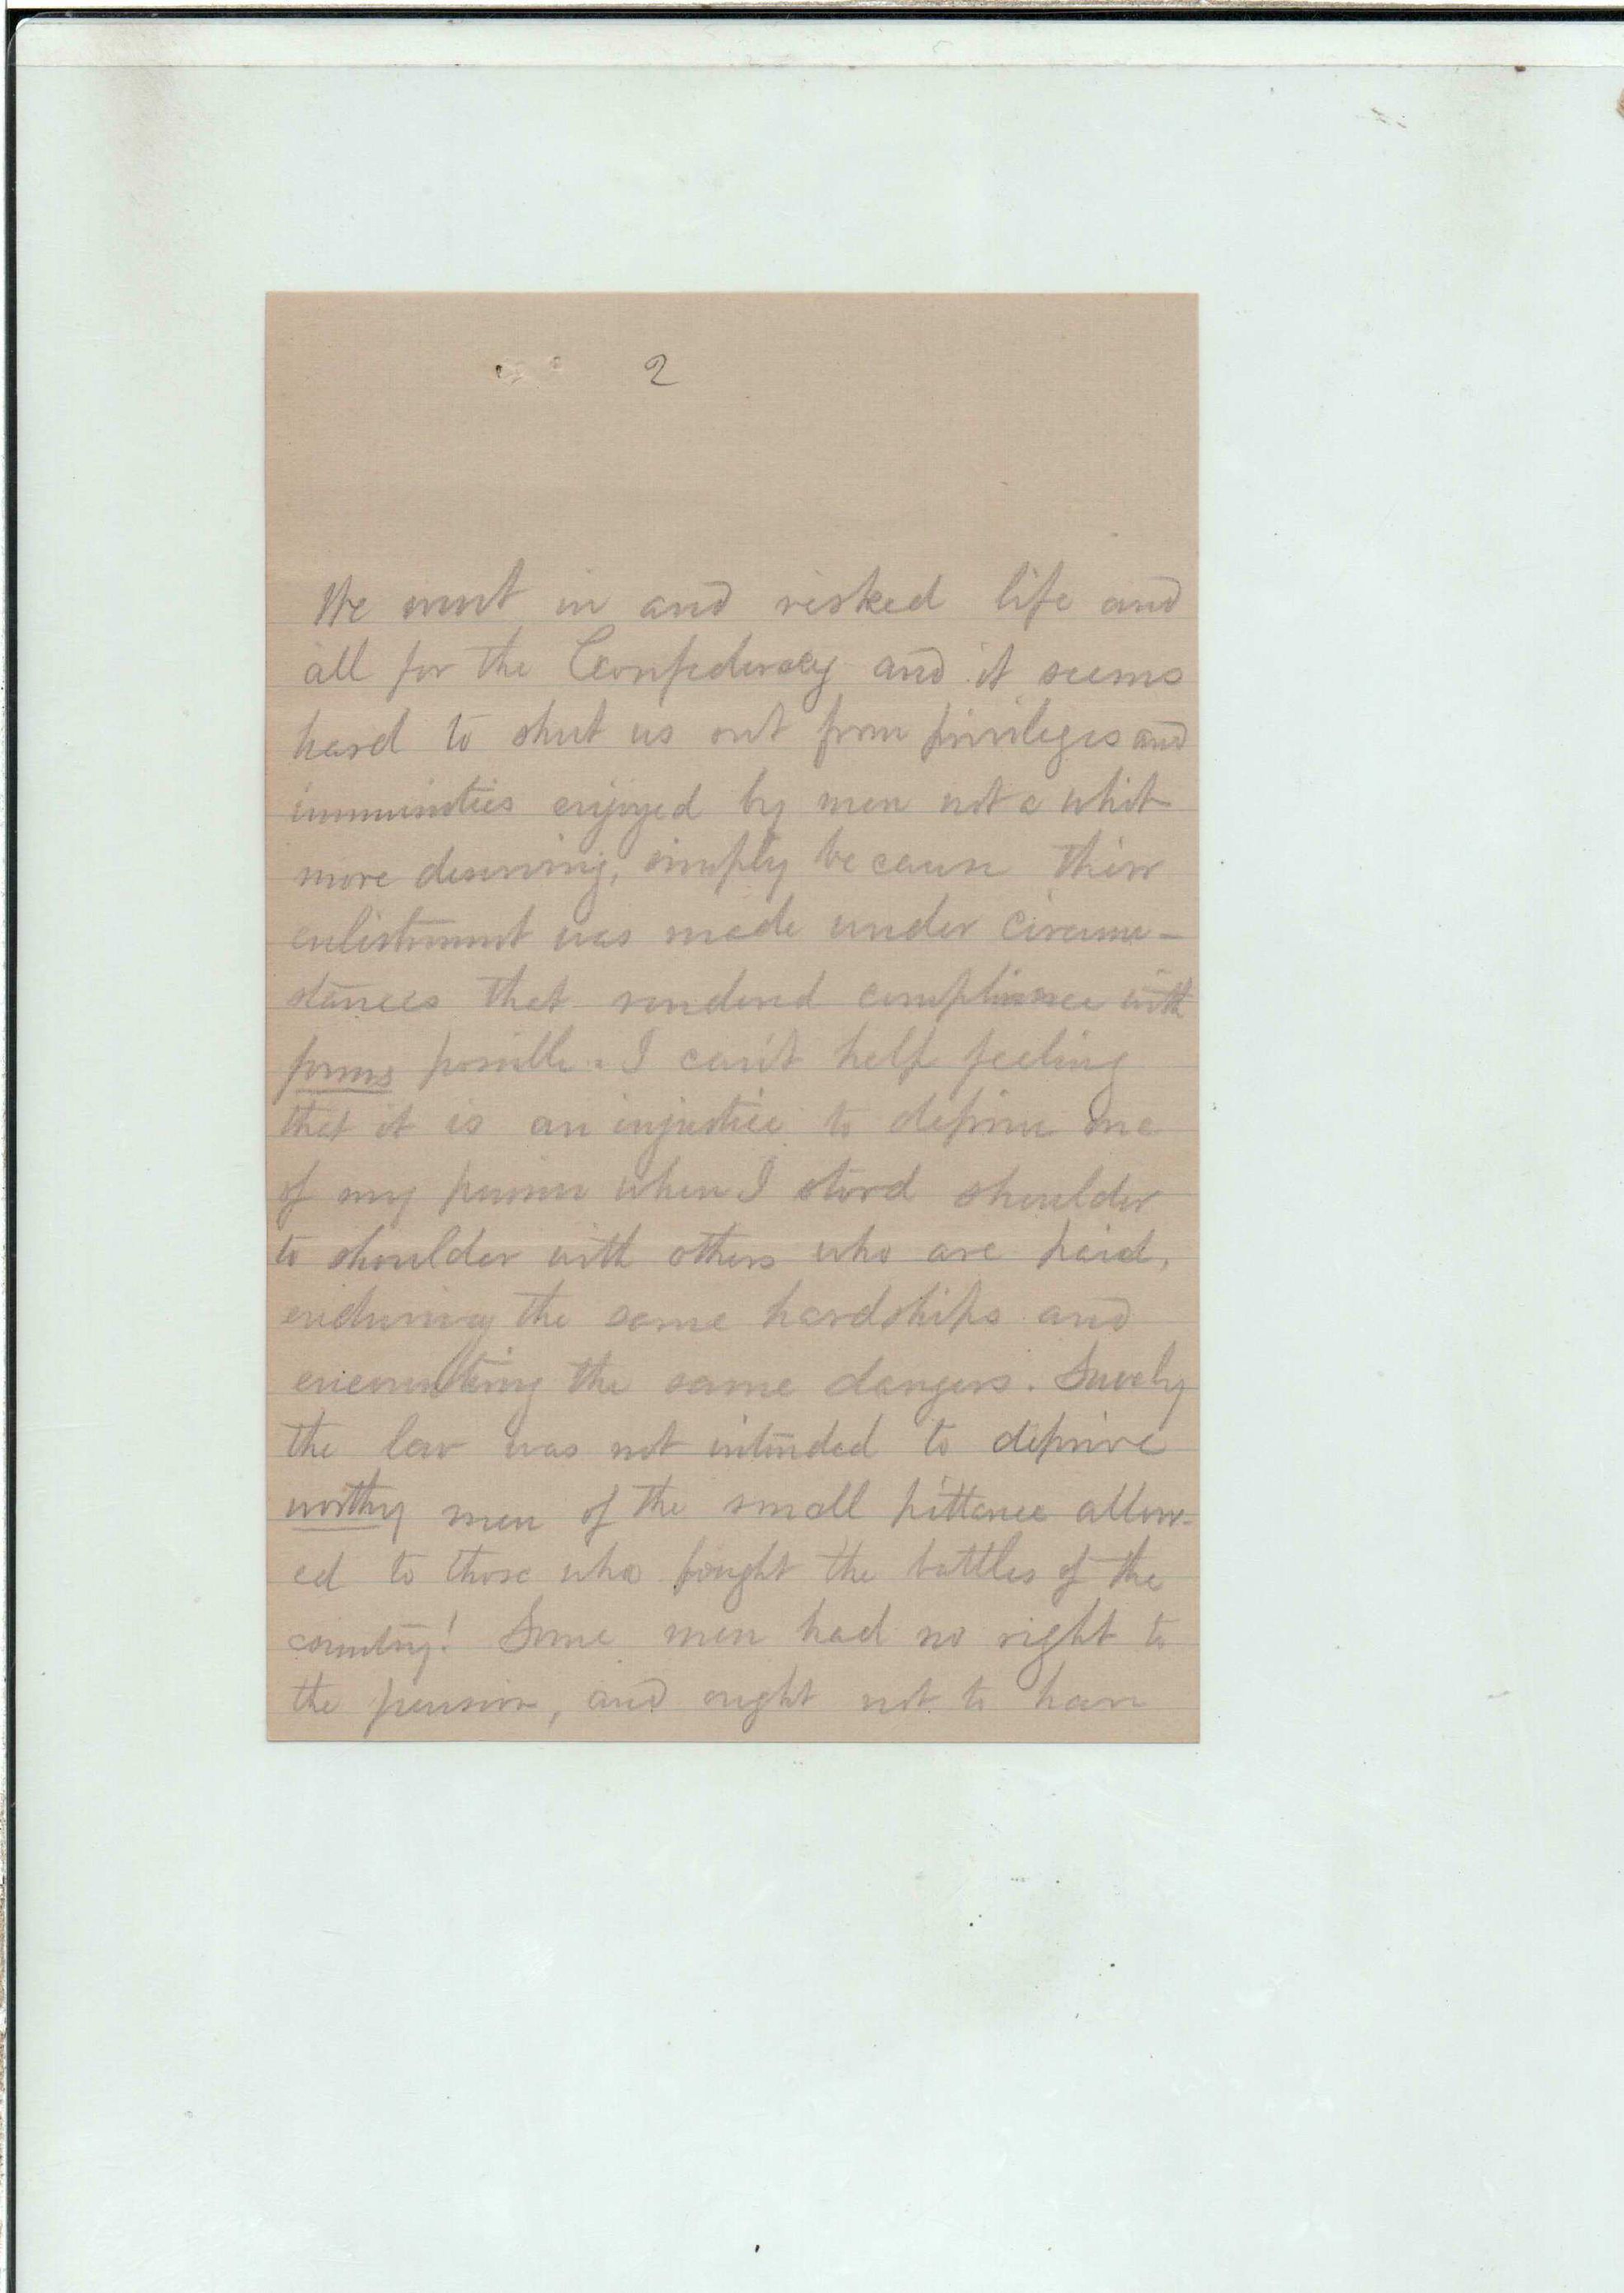 2
We went in and risked life and
all for the Confederacy and it seems
hard to shut us out from privileges and
immunities enjoyed by men not a whit
more deserving, simply because their
enlistment was made under circum-
stances that rendered compliance with
forms possible. I can't help feeling
that it is an injustice to deprive me
of my pension when I stood shoulder
to shoulder with others who are paid,
enduring the same hardships and
encountering the same dangers. Surely
the law was not intended to deprive
worthy men of the small pittance allow-
ed to those who fought the battles of the
country! Some men had no right to
the pension, and ought not to have